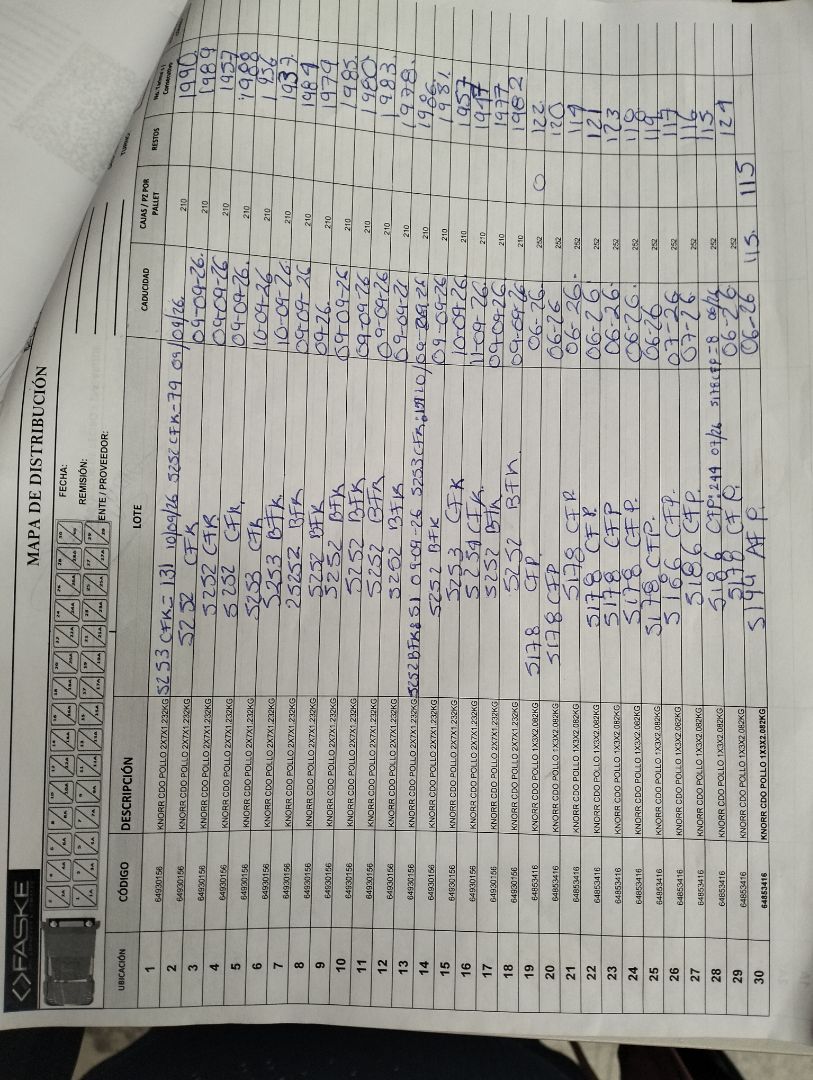 FASKE
MAPA DE DISTRIBUCIÓN
FECHA:
REMISIÓN:
ENTE / PROVEEDOR:
TURNO
UBICACIÓN CÓDIGO DESCRIPCIÓN LOTE CADUCIDAD CAJAS / PZ POR PALLET RESTOS Consecutivo
1 64930156 KNORR CDO POLLO 2X7X1.232KG 5253 CFK = 131 10/09/26 5252 CFK = 79 09/09/26 210 1990
2 64930156 KNORR CDO POLLO 2X7X1.232KG 5252 CFK 09-09-26. 210 1989
3 64930156 KNORR CDO POLLO 2X7X1.232KG 5252 CFK 09-09-26 210 1957
4 64930156 KNORR CDO POLLO 2X7X1.232KG 5252 CFK, 09-09-26. 210 1988
5 64930156 KNORR CDO POLLO 2X7X1.232KG 5253 CFK 10-09-26 210 1956
6 64930156 KNORR CDO POLLO 2X7X1.232KG 5253 BFK 10-09-26 210 1937
7 64930156 KNORR CDO POLLO 2X7X1.232KG 25252 BFK 09-09-26 210 1984
8 64930156 KNORR CDO POLLO 2X7X1.232KG 5252 BFK 09-26. 210 1979
9 64930156 KNORR CDO POLLO 2X7X1.232KG 5252 BFK 09-09-26 210 1985
10 64930156 KNORR CDO POLLO 2X7X1.232KG 5252 BFK 09-09-26 210 1980
11 64930156 KNORR CDO POLLO 2X7X1.232KG 5252 BFK 09-09-26 210 1983
12 64930156 KNORR CDO POLLO 2X7X1.232KG 5252 BFK 09-09-26 210 1978.
13 64930156 KNORR CDO POLLO 2X7X1.232KG 5252 BFK: 51 09-09-26 5253 CFK: 210 1986
14 64930156 KNORR CDO POLLO 2X7X1.232KG 5252 BFK 09-09-26 210 1981
15 64930156 KNORR CDO POLLO 2X7X1.232KG 5253 CFK 10-09-26 210 1957
16 64930156 KNORR CDO POLLO 2X7X1.232KG 5254 CFK. 11-09-26. 210
17 64930156 KNORR CDO POLLO 2X7X1.232KG 5252 BFK 09-09-26. 210 1977
18 64930156 KNORR CDO POLLO 2X7X1.232KG 5252 BFK. 09-09-26 210 1982
19 64853416 KNORR CDO POLLO 1X3X2.082KG 5178 CFP. 06-26. 252 0 122.
20 64853416 KNORR CDO POLLO 1X3X2.082KG 5178 CFP 06-26 252 120
21 64853416 KNORR CDO POLLO 1X3X2.082KG 5178 CFP. 06-26. 252 114
22 64853416 KNORR CDO POLLO 1X3X2.082KG 5178 CFP. 06-26 252 121
23 64853416 KNORR CDO POLLO 1X3X2.082KG 5178 CFP 06-26. 252 123
24 64853416 KNORR CDO POLLO 1X3X2.082KG 5178 CFP. 06-26. 252 118
25 64853416 KNORR CDO POLLO 1X3X2.082KG 5178 CFP. 06-26. 252 119
26 64853416 KNORR CDO POLLO 1X3X2.082KG 5186 CFP. 07-26 252 117
27 64853416 KNORR CDO POLLO 1X3X2.082KG 5186 CFP. 07-26 252 116
28 64853416 KNORR CDO POLLO 1X3X2.082KG 5186 CFP: 244 07/26 5178 CFP = 8 06/26 252 115
29 64853416 KNORR CDO POLLO 1X3X2.082KG 5178 CFP. 06-26 252 124
30 64853416 KNORR CDO POLLO 1X3X2.082KG 5144 AFP. 06-26 115. 115